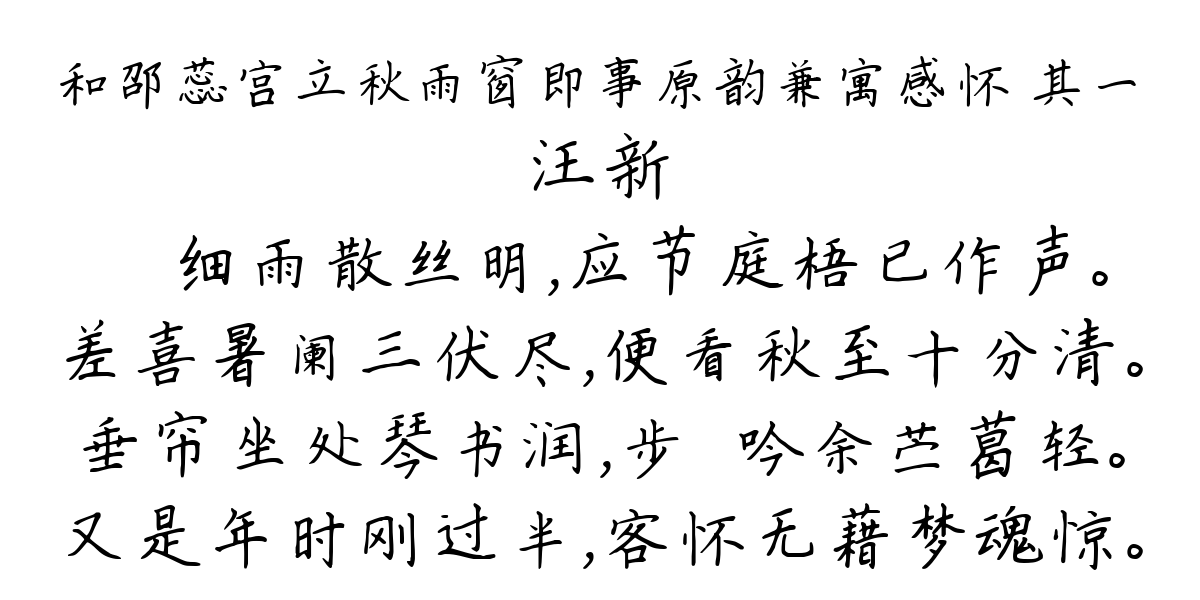 和邵蕊宫立秋雨窗即事原韵兼寓感怀 其一
汪新
细雨散丝明,应节庭梧已作声。
差喜暑阑三伏尽,便看秋至十分清。
垂帘坐处琴书润,步 吟余苎葛轻。
又是年时刚过半,客怀无藉梦魂惊。